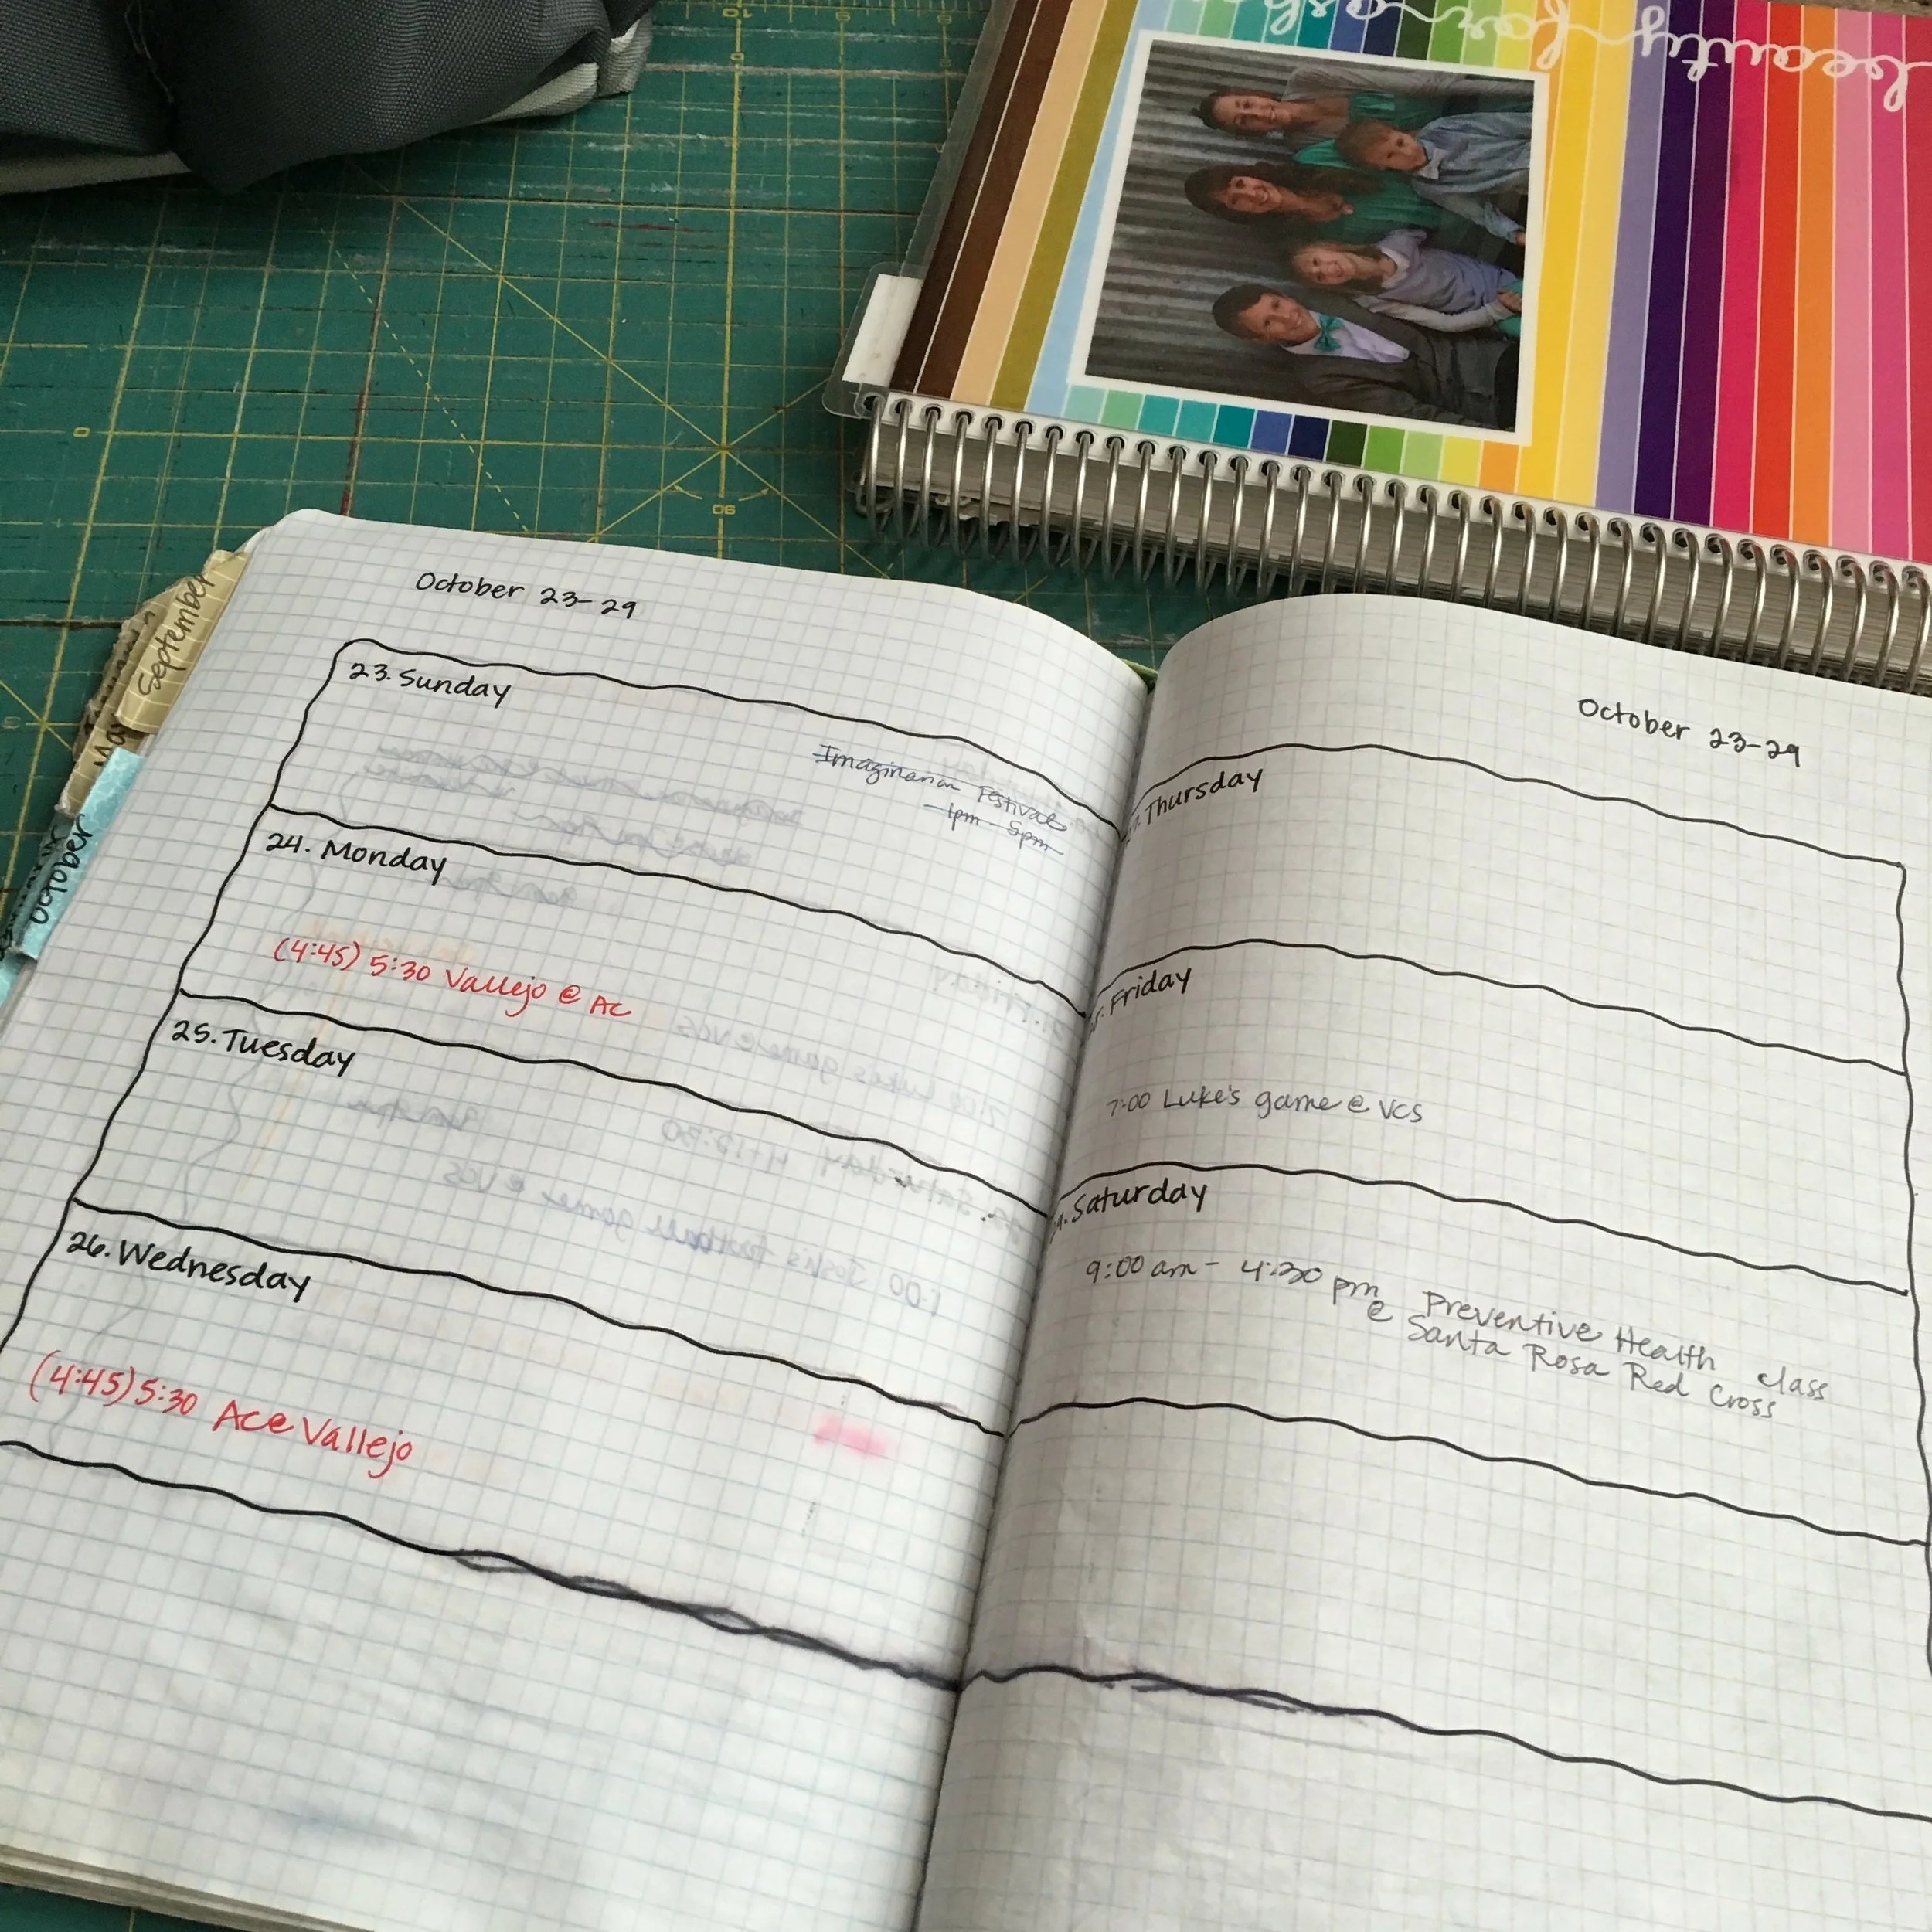 beauty for ashes
September
October
October 23-29
23. Sunday
Imaginarium Festival
1pm - 5pm
24. Monday
(4:45) 5:30 Vallejo @ AC
25. Tuesday
26. Wednesday
(4:45) 5:30 Ace Vallejo
October 23-29
Thursday
Friday
7:00 Luke's game @ VCS
Saturday
9:00 am - 4:30 pm Preventive Health class
@ Santa Rosa Red Cross